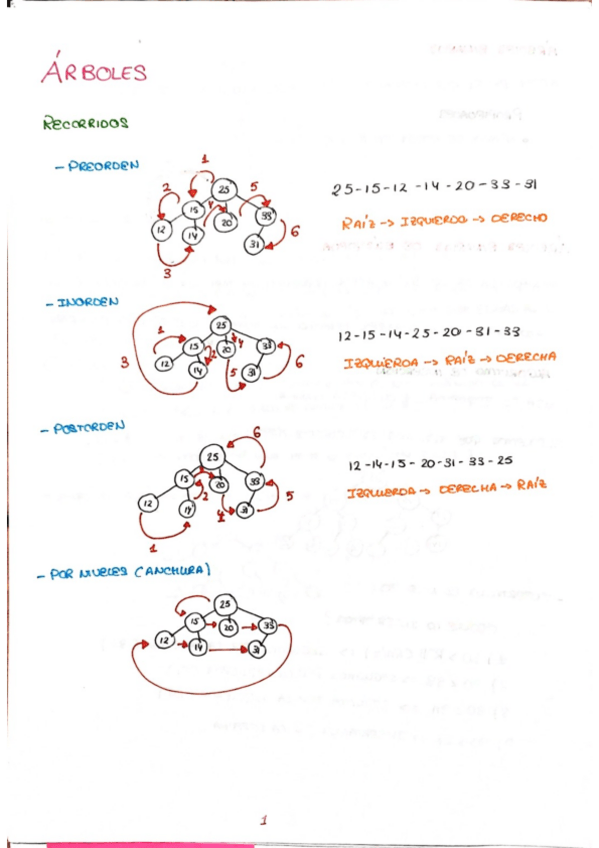 ÁRBOLES
RECORRIDOS
- PREORDEN
1
2
4
5
25
15
33
12
14
20
31
6
3
25-15-12-14-20-33-31
RAÍZ -> IZQUIERDO -> DERECHO
- INORDEN
1
3
2
4
5
6
25
15
20
33
12
14
31
12-15-14-25-20-31-33
IZQUIERDA -> RAÍZ -> DERECHA
- POSTORDEN
6
25
15
20
33
12
14
31
3
2
4
5
1
12-14-15-20-31-33-25
IZQUIERDA -> DERECHA -> RAÍZ
- POR NIVELES (ANCHURA)
25
15
20
33
12
14
31
1